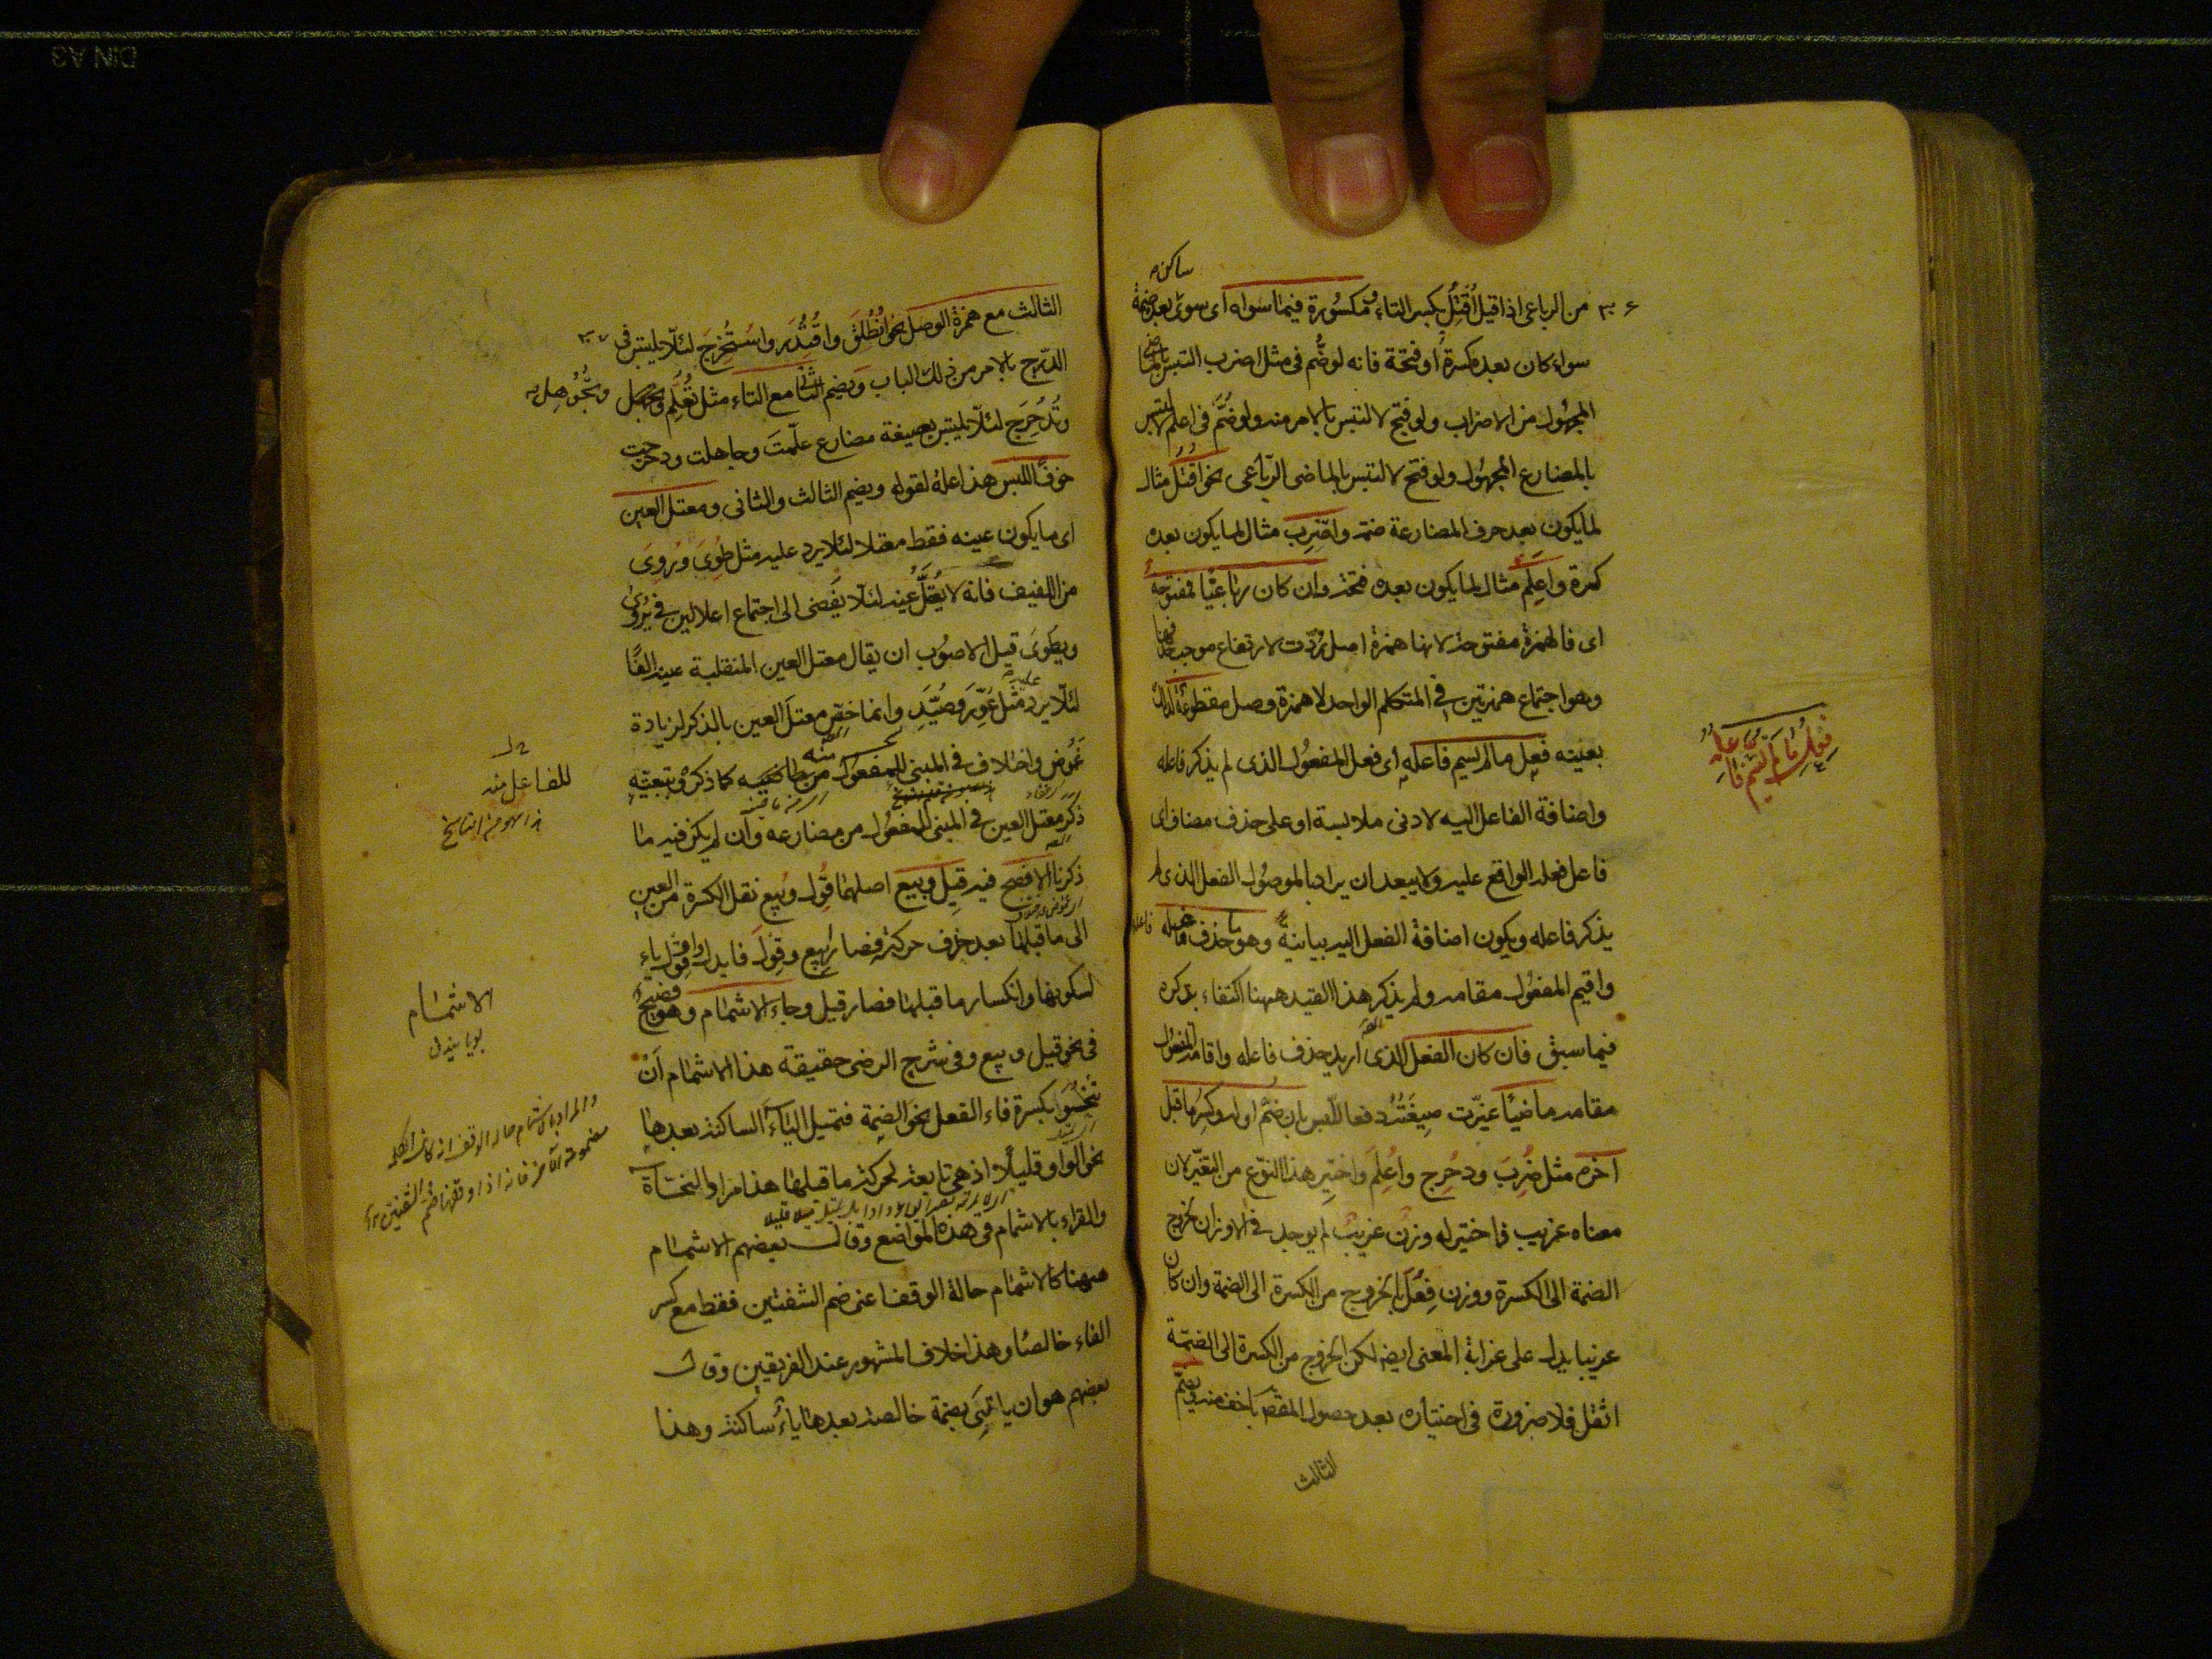 ساكن
من الرباعى اذا قيل اُقْتِلُ بكسر التاء ومكسُورة فيما سواه اى سوى بعده ضمة
سواء كان بعده كسرة او فتحة فانه لو ضُّم فى مثل اضرب التبس بالماضى
المجهُول من الاضراب ولو فتح لالتبس بالامر منه ولو ضُمَّ فى اعلم لالتبس
بالمضارع المجهُول ولو فتح لالتبس بالماضى الرّباعى نحو اُقْتُلْ مثال
لما يكون بعد حرف المضارعة ضمة واضرِب مثال لما يكون بعده
كسرة واعلَم مثال لما يكون بعده فتحة وان كان رباعيًّا فمفتوحة
اى فالهمزة مفتوحة لانها همزة اصل رُدّت لارتفاع موجب حذفها
وهو اجتماع همزتين فى المتكلم الواحد لا همزة وصل مقطوعة لذلك
بعينه فعل مالم يسم فاعله اى فعل المفعُول الذى لم يذكر فاعله
واضافة الفاعل اليه لادنى ملابسة او على حذف مضاف اى
فاعل فعله الواقع عليه ولا يبعد ان يراد بالموصُول الفعل الذى لم
يذكر فاعله ويكون اضافة الفعل اليه بيانية وهو ما حذف فاعله
واقيم المفعُول مقامه ولم يذكر هذا القيد ههنا اكتفاء بذكره
فيما سبق فان كان الفعل الذى اريد حذف فاعله واقامة المفعُول
مقامه ماضيًا غيّرت صِيغَتُه دفعا للّبس بان ضُمَّ اوله وكُسِرَ ما قبل
آخره مثل ضُرِبَ ودُحرِج واُعلِمَ واختير هذا النّوع من التغيّر لان
معناه غريب فاختير له وزنٌ غريبٌ لم يوجد فى الاوزان لخروج
الضمة الى الكسرة ووزن فِعُل بالخروج من الكسرة الى الضمة وان كان
غريبا يدل على غرابة المعنى ايضا لكن الخروج من الكسرة الى الضمّة
اثقل فلا ضرورة فى اختياره بعد حصول المقصد باخف منه ويضم
الثالث
فعل مالم يسم فاعله
الثالث مع همزة الوصل نحو اُنْطُلِقَ واُقْتُدِرَ واُسْتُخْرِجَ لئلّا يلتبس فى
الدّرج بالامر من ذلك الباب ويضم الثانى مع التاء مثل تُعُلِّمَ وتُجُوهِل
وتُدُحْرِجَ لئلّا يلتبس بصيغة مضارع علّمتَ وجاهلت ودحرجت
خوف اللبس هذا علة لقوله ويضم الثالث والثانى ومعتل العين
اى ما يكون عينه فقط معتلا لئلا يرد عليه مثل طُوِىَ ورُوِىَ
من اللفيف فانه لا يُعَلُّ عينه لئلّا يفضى الى اجتماع اعلالين فى يُروى
ويُطوى قيل الاصوب ان يقال معتل العين المنقلبة عينه الفًا
لئلّا يرد عليه مثل عُوِرَ وصُيِدَ وانما خص معتل العين بالذكر لزيادة
غمُوض واختلاف فى المبنى للمفعول من ماضيه كما ذكره وبتبعيّته
ذكر معتل العين فى المبنى للمفعُول من مضارعه وان لم يكن فيه ما
ذكرنا الافصح فيه قِيل وبِيع اصلهما قُوِل وبُيِع نقل الكسرة من العين
الى ما قبلها بعد حذف حركته فصار بِيع وقِول فابدل واو قِوْل ياء
لسكونها وانكسار ما قبلها فصار قيل وجاء الاشمام وهو فصيح
فى نحو قيل وبيع وفى شرح الرضى حقيقة هذا الاشمام اَن
تَنْحُوَ بكسرة فاء الفعل نحو الضمة فتميل الياء الساكنة بعدها
نحو الواو قليلًا اذ هى تابعة لحركة ما قبلها هذا مراد النحاة
والقراء بالاشمام فى هذه المواضع وقال بعضهم الاشمام
ههنا كالاشمام حالة الوقف اعنى ضم الشفتين فقط مع كسر
الفاء خالصًا وهذا خلاف المشهور عند الفريقين وقال
بعضهم هو ان ياتىَ بضمة خالصة بعدها ياءٌ ساكنة وهذا
للفاعل منه
الاشمام